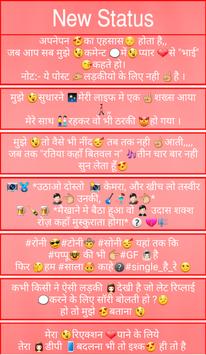 New Status
अपनेपन 🥰का एहसास😏 होता है,,
जब आप सब मुझे 😘कमेन्ट 💬में😘प्यार ❤से "भाई"
😘कहते हो।
नोट:- ये पोस्ट 👆लड़कीयो के लिए नही ✌ है ।
मुझे 😘सुधारने 🌃मेरी लाइफ मे एक ☝शख्स आया
था
मेरे साथ 👫रहकर वो भी ठरकी 😈 हो गया ।
मुझे 😘तो वैसे भी नींद😴 तक नही ☝आती,,,,
जब तक "रतिया कहाँ बितवल न" 🎶तीन चार बार नही
सुन लेता हूँ🥰
*उठाओ दोस्तो केमरा, और खींच लो तस्वीर
उनकी,
*मैखाने मे बैठा हुआ वो उदास शक्श
रोज़ कहाँ मुस्कुराता होगा*
#रोनी #टोनी #सोनी यहां तक कि
#पप्पू की भी #GF है
फिर हम #साला कहे #single_है_रे
कभी किसी ने ऐसी लड़की देखी है जो लेट रिप्लाई
करने के लिए सॉरी बोलती हो ?
हो तो मुझे बताना
मेरा रिएक्शन पाने के लिये
तेरा डीपी बदलना भी तो इश्क ही तो है